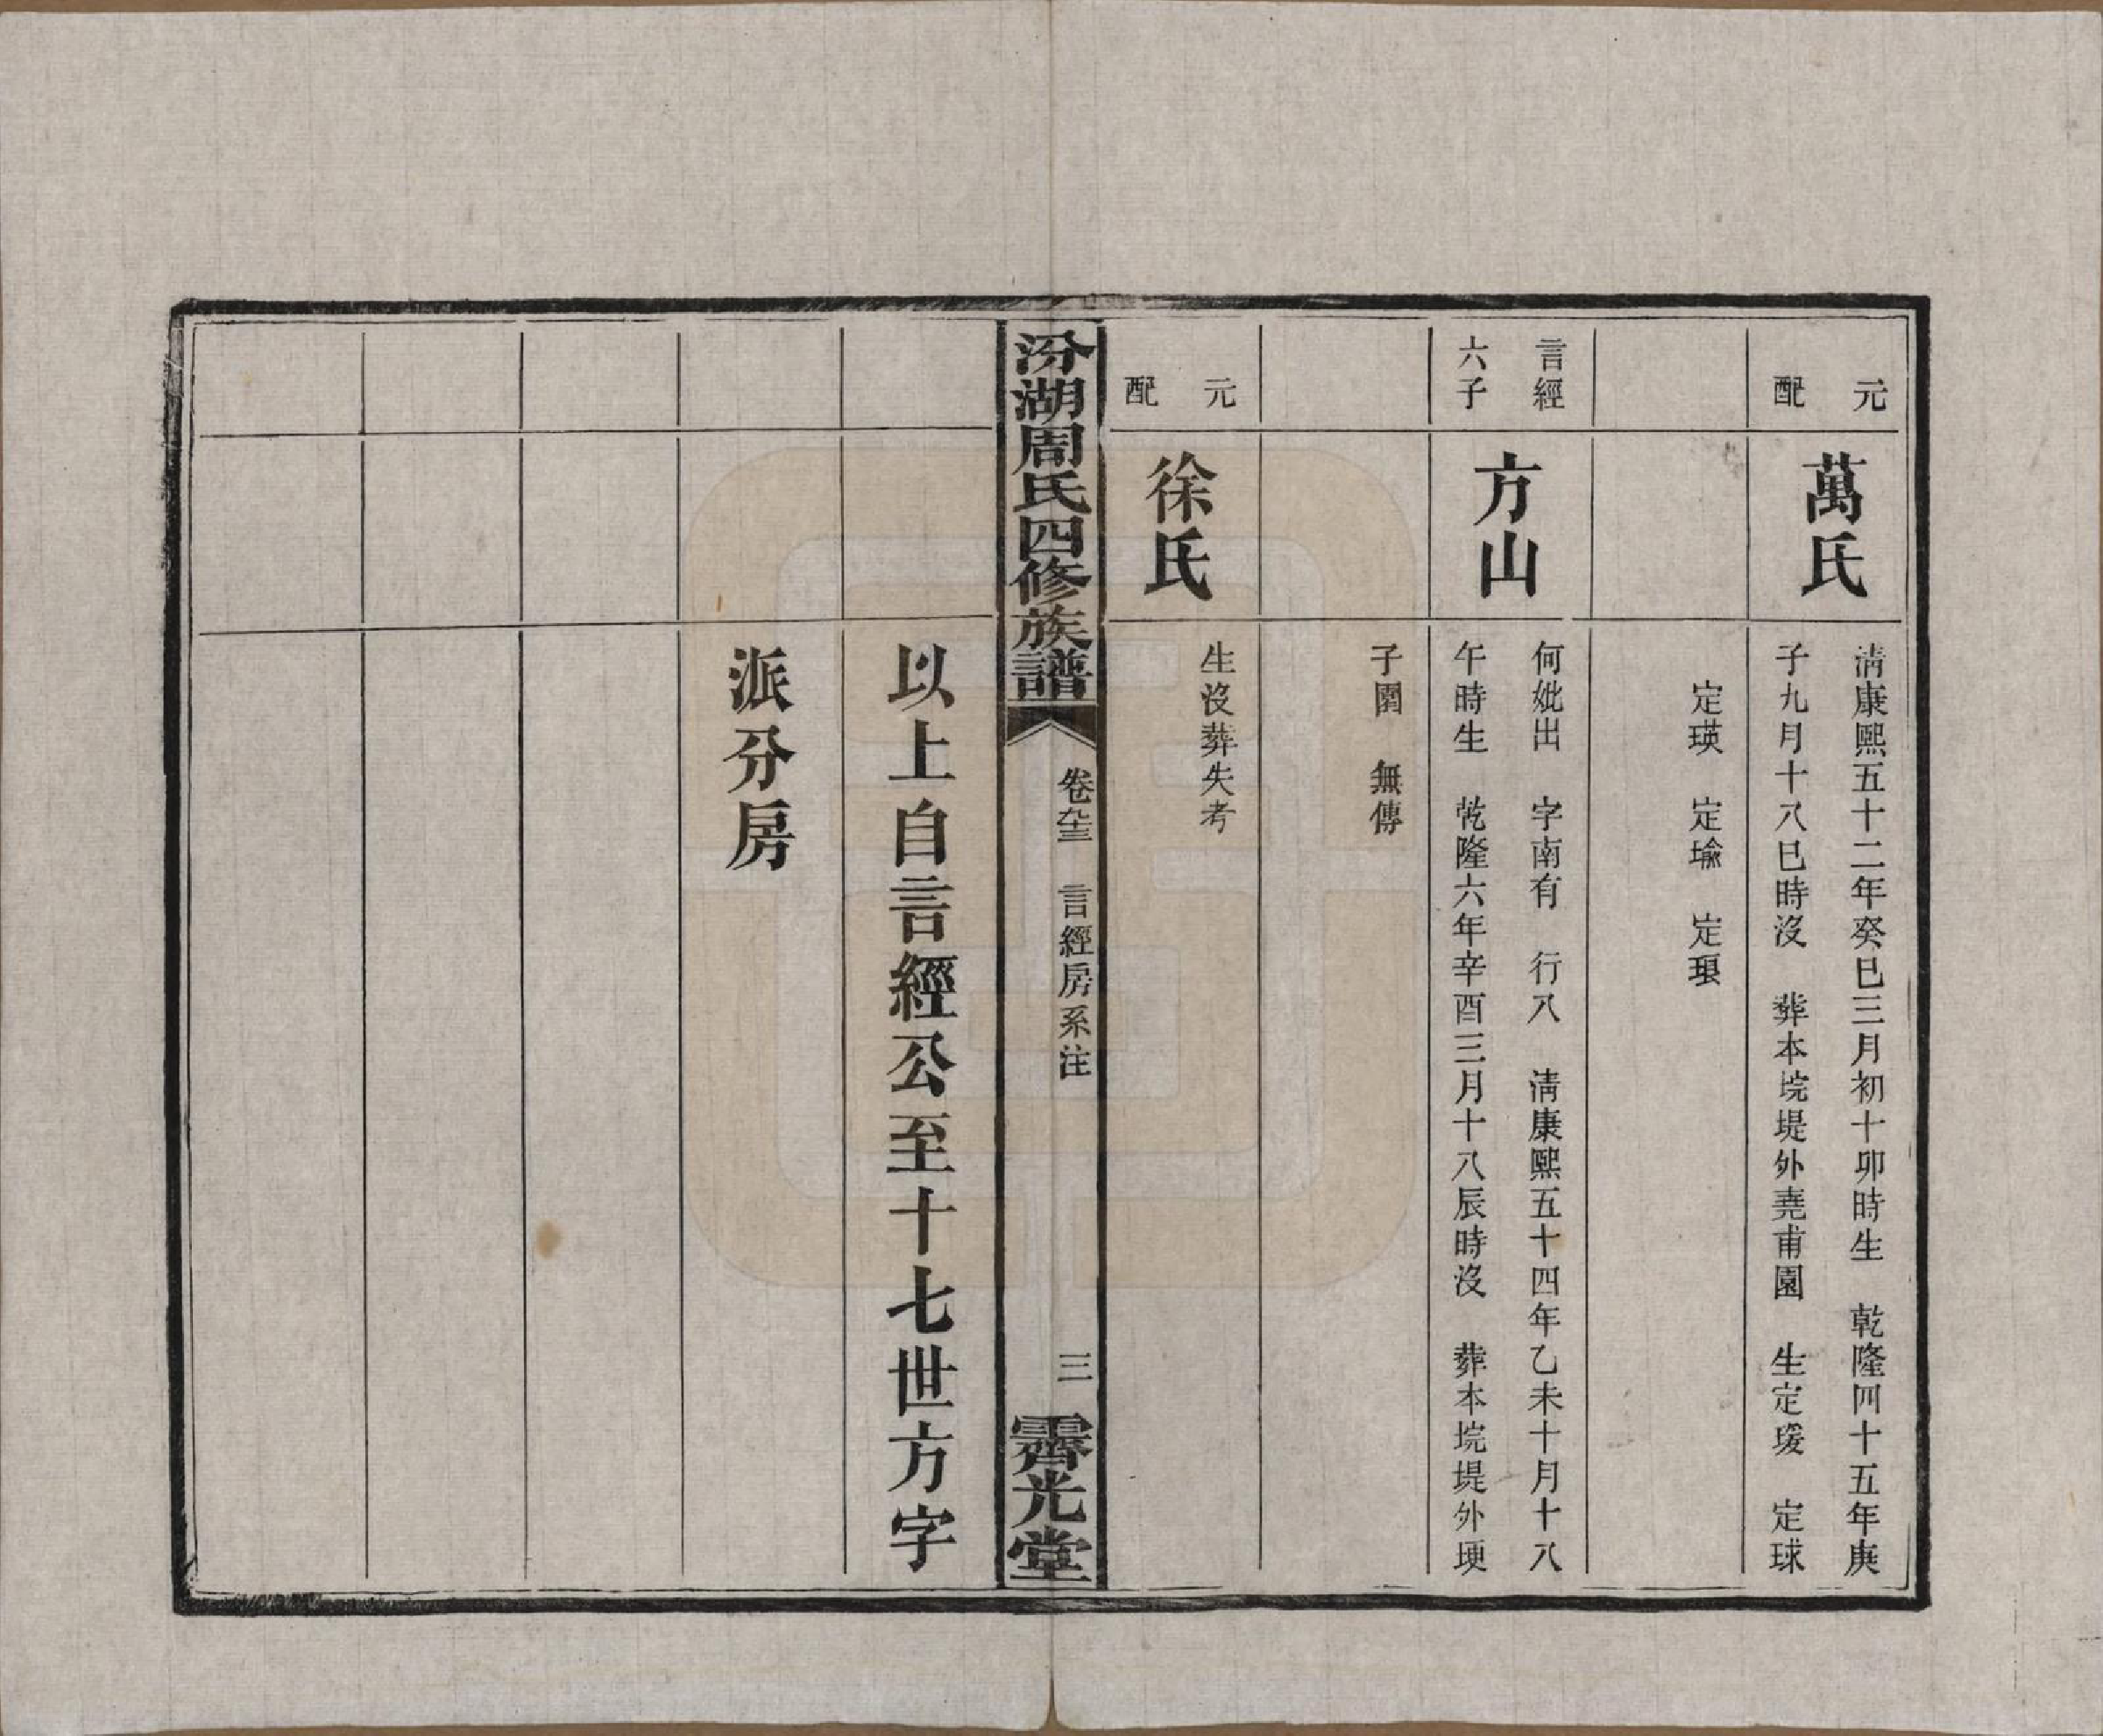 元配
萬氏
淸康熙五十二年癸巳三月初十卯時生　乾隆四十五年庚
子九月十八巳時沒　葬本垸堤外堯甫園　生定瑗　定球
定瑛　定瑜　定琅
言經
六子
方山
何妣出　字南有　行八　淸康熙五十四年乙未十月十八
午時生　乾隆六年辛酉三月十八辰時沒　葬本垸堤外埂
子園　無傳
元配
徐氏
生沒葬失考
汾湖周氏四修族譜
卷
言經房系注
三
霽光堂
以上自言經公至十七世方字
派分房